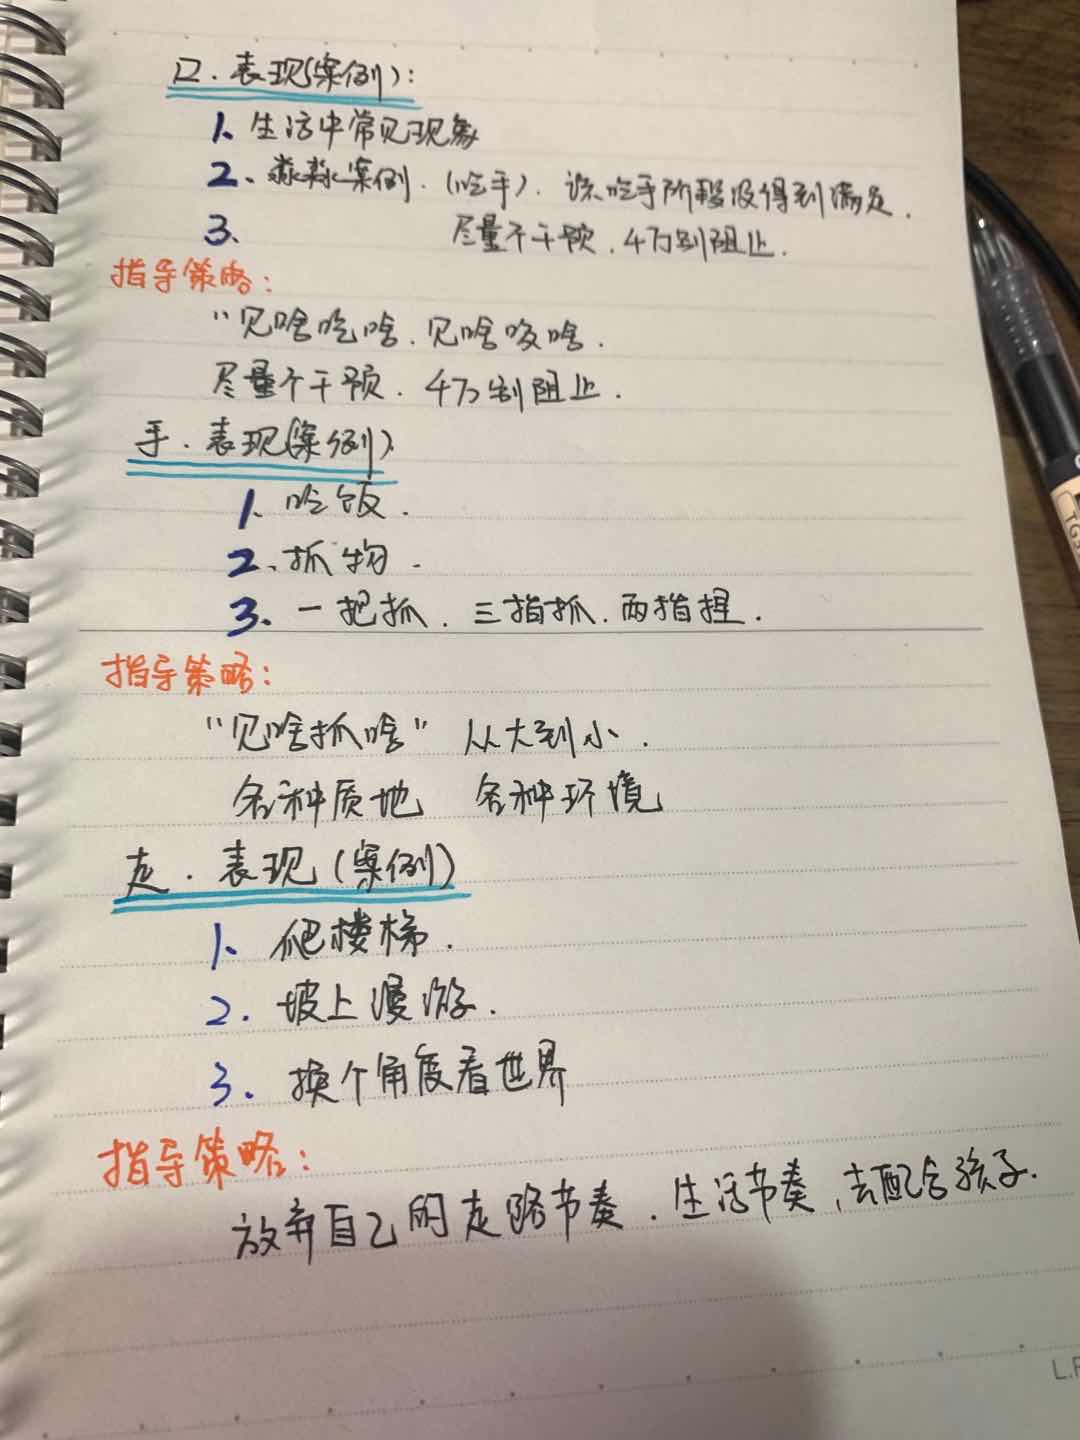 口. 表现(案例):
1、生活中常见现象
2、淼淼案例.(吃手). 该吃手阶段没得到满足.
3、 尽量不干预. 4万别阻止.
指导策略:
"见啥吃啥. 见啥咬啥.
尽量不干预. 4万别阻止.
手. 表现(案例)
1、吃饭.
2、抓物.
3、一把抓. 三指抓. 两指捏.
指导策略:
"见啥抓啥" 从大到小.
各种质地 各种环境
走. 表现(案例)
1、爬楼梯.
2. 坡上漫游.
3. 换个角度看世界
指导策略:
放弃自己的走路节奏. 生活节奏, 去配合孩子.